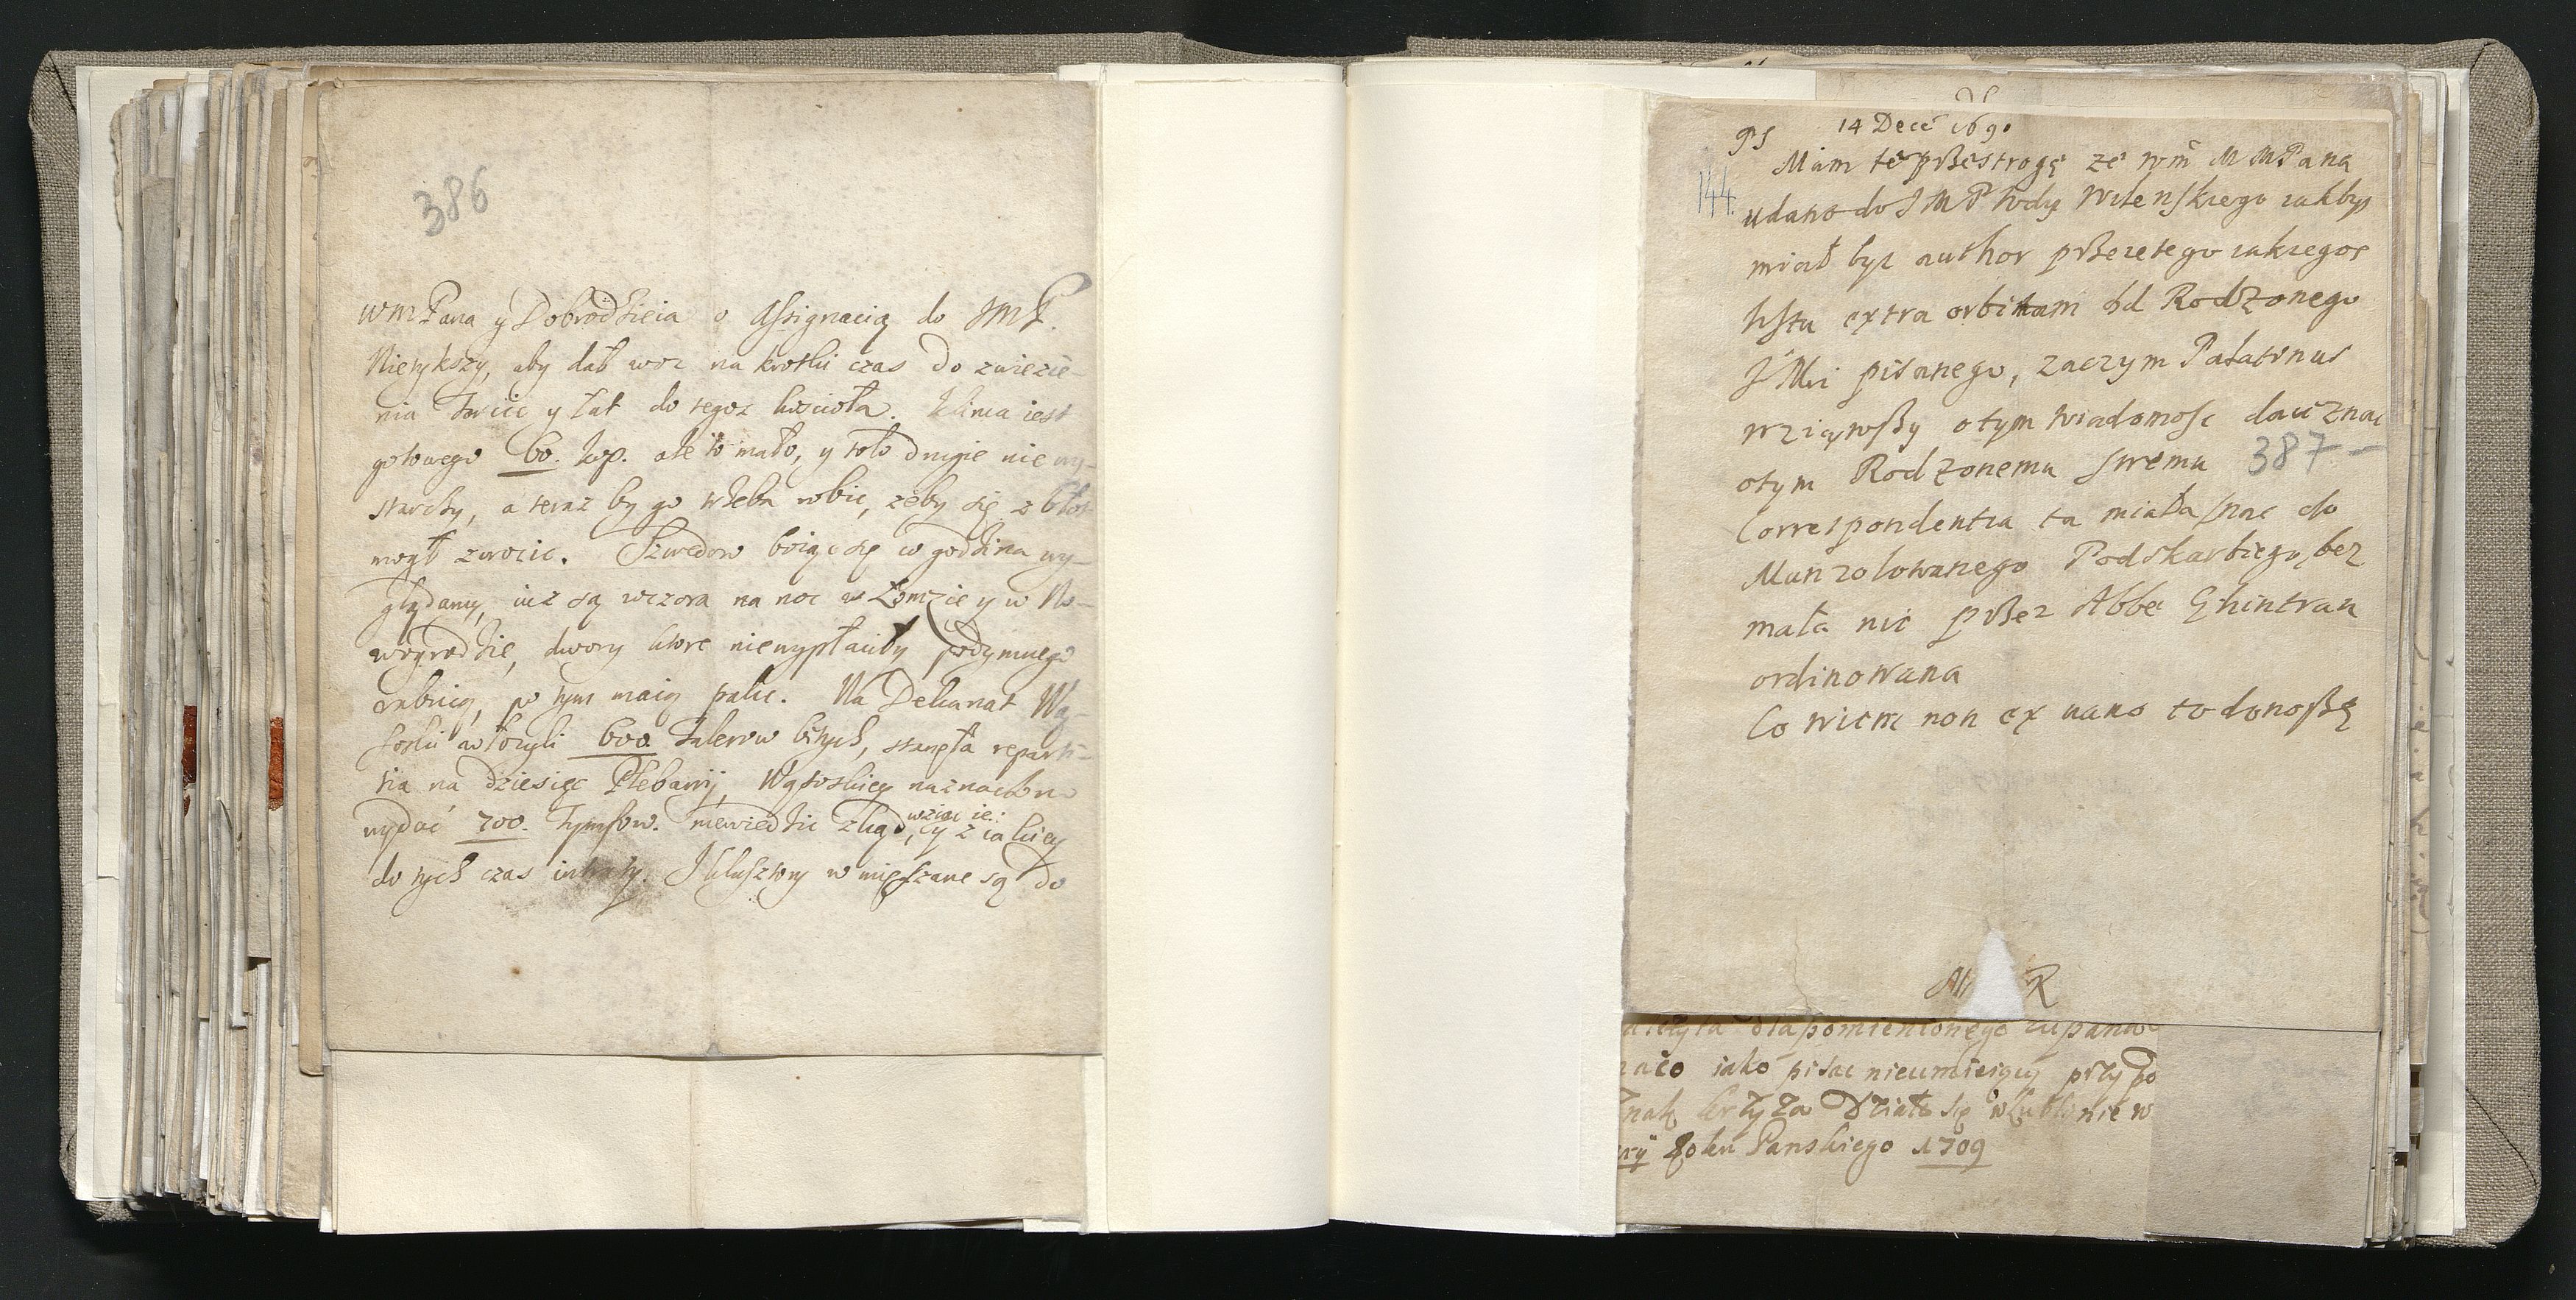 386
WMPana y Dobrodzieia o Assignacią do JMP.
aby dał woz na krotki czas do zwiezie-
nia Tarcic y Łat do tegoz koscioła. iest
gotowego 60. kop. ale to mało, y toto drugie nie wy-
starczy, a teraz by go trzeba robic, zeby się z
mogł zwrocic. Szwedow boiąc się co godzina wy-
glądamy, iuz są wczora na noc w Łomzie y w No-
wogrodzie, dwory ktore niewypłaciły podymnego
rabuią, po tym maią palic. Na Dekanat Wą-
soski włozyli 600. Talerow bitych, stanęła reparti-
tia na dziesięc Plebanij, Wąsoskiey naznaczono
wydać 700. Tymfow. niewiedzic zkąd wziąc ie: cy z iakiey
do tych czas intraty. Kluszowy w mieszane są do
PS 14 Dece 1690
144.
Mam te przestrogę ze wm M MPana
udano do J M P Wdy Wilenskiego iakby
miał byc author przeietego iakiegos
listu extra orbitam od Rodzonego
JMci pisanego, zaczym Palatinus
wziąwszy otym wiadomosc dac znac
otym Rodzonemu swemu 387 -
Correspondentia ta miała snac do
Podskarbiego, bez
mała nic przez Abbe
ordinowana
Co wiem non ex uano to donoszę
R
dla pomienionego zupana
iako pisac nieumieiący przy po
Znak krzyza Działo się w Lublinie w
Roku Panskiego 1709